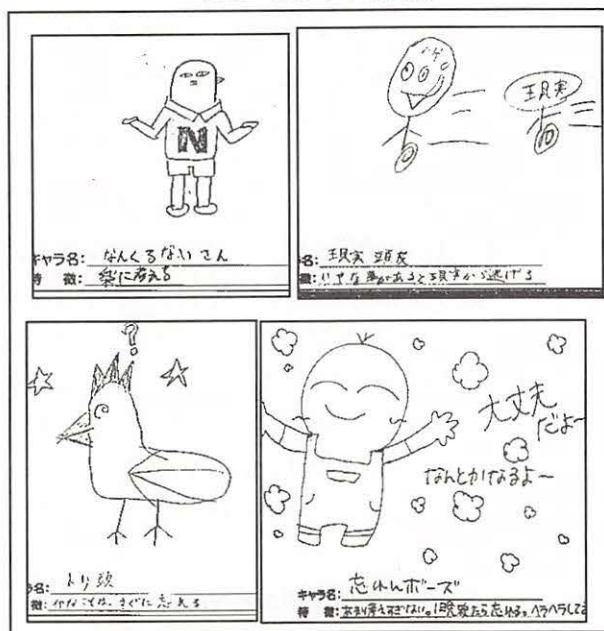 N
キャラ名: なんくるないさん
特 徴: 楽に考える
現実
名: 現実頭皮
徴: いやな事があると現実から逃げる
?
名: トリ頭
徴: イヤなことは、すぐに忘れる
大丈夫
だよ〜
なんとかなるよ〜
キャラ名: 忘れんボーズ
特 徴: あまり考えすぎない。1晩寝たら忘れる。ヘラヘラしてる